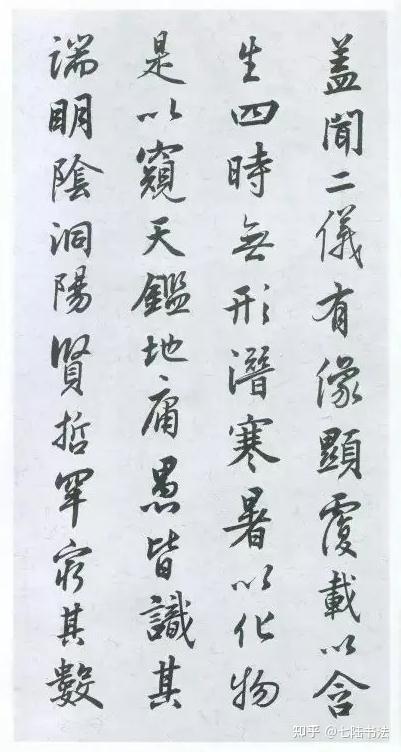 盖聞二儀有像顯覆載以含
生四時無形潛寒暑以化物
是以窺天鑑地庸愚皆識其
端明陰洞陽賢哲罕窮其數
知乎 @七陆书法